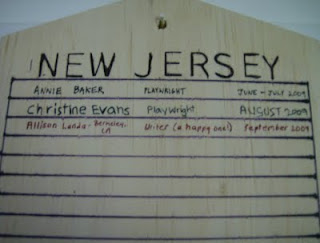 NEW JERSEY
ANNIE BAKER PLAYWRIGHT JUNE - JULY 2009
Christine Evans Playwright AUGUST 2009
Allison Landa - Berkeley, CA Writer (a happy one!) September 2009